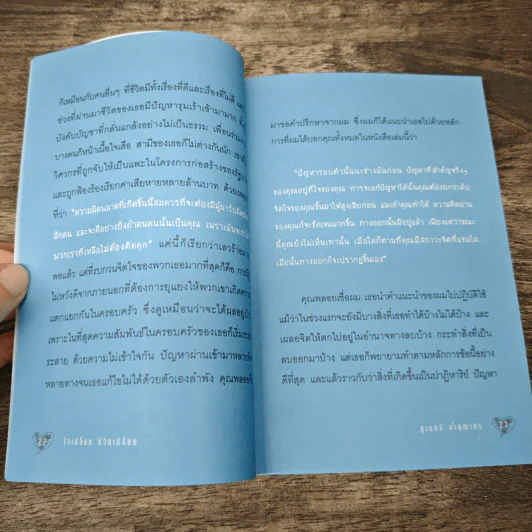 ก็เหมือนกับคนอื่นๆ ที่ชีวิตมีทั้งเรื่องที่ดีและเรื่องที่ไม่ดี
ช่วงที่ผ่านมาชีวิตของเธอมีปัญหารุมเร้าเข้ามามาก
บังคับบัญชาที่กลั่นแกล้งอย่างไม่เป็นธรรม เพื่อนร่วม
บางคนก็หน้าเนื้อใจเสือ สามีของเธอก็ไม่ต่างกันนัก
วิศวกรที่ถูกจับให้เป็นแพะในโครงการก่อสร้างของรัฐ
และถูกฟ้องร้องเรียกค่าเสียหายหลายล้านบาท ด้วยเหตุผล
ที่ว่า "ความผิดพลาดที่เกิดขึ้นนี้สมควรที่จะต้องมีผู้มารับผิด
สักคน และจะดีอย่างยิ่งถ้าคนคนนั้นเป็นคุณ เพราะมันจะทำ
พวกเราที่เหลือไม่ต้องติดคุก" แค่นี้ก็เรียกว่าเลวร้าย
พอแล้ว แต่ที่รบกวนจิตใจของพวกเธอมากที่สุดก็คือ
ไม่หวังดีจากภายนอกที่ต้องการยุแยงให้พวกเขาเกิดความ
แตกแยกกันในครอบครัว ซึ่งดูเหมือนว่าจะได้ผลอยู่
เพราะในที่สุดความสัมพันธ์ในครอบครัวของเธอก็เริ่ม
ระส่าย ด้วยความไม่เข้าใจกัน ปัญหาผ่านเข้ามาหลาย
หลายทางจนเธอแก้ไขไม่ได้ด้วยตัวเองลำพัง คุณพลอย
22 ใจเปลี่ยน ชีวิตเปลี่ยน
มาขอคำปรึกษาจากผม ซึ่งผมก็ได้แนะนำเธอไปด้วยหลัก
การที่ผมได้บอกคุณทั้งหมดในหนังสือเล่มนี้ว่า
"ปัญหารอบตัวนั้นน่ะช่างมันก่อน ปัญหาที่สำคัญจริงๆ
ของคุณอยู่ที่ใจของคุณ การจะแก้ปัญหาได้นั้นคุณต้องยกระดับ
จิตใจของคุณขึ้นมาให้สูงเสียก่อน และถ้าคุณทำได้ ความคิดอ่าน
ของคุณก็จะชัดเจนมากขึ้น ทางออกนั้นมีอยู่แล้ว เพียงแต่ว่าขณะ
นี้คุณยังไม่เห็นเท่านั้น เมื่อใดก็ตามที่คุณมีสภาวะจิตที่แจ่มใส
เมื่อนั้นทางออกก็จะปรากฏขึ้นเอง"
คุณพลอยเชื่อผม เธอนำคำแนะนำของผมไปปฏิบัติใช้
แม้ว่าในช่วงแรกจะยังมีบางสิ่งที่เธอทำได้บ้างไม่ได้บ้าง และ
เผลอจิตให้ตกไปอยู่ในอำนาจทางลบบ้าง กระทำสิ่งที่เป็น
ลบออกมาบ้าง แต่เธอก็พยายามทำตามหลักการข้อนี้อย่าง
ดีที่สุด และแล้วราวกับว่าสิ่งที่เกิดขึ้นเป็นปาฏิหาริย์ ปัญหา
23